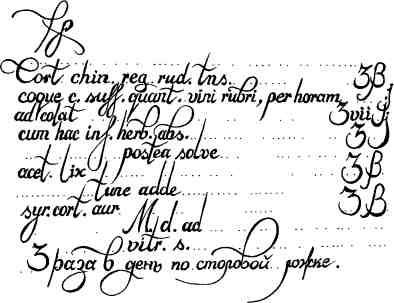 Rp
Cort chin. reg rud. tns. ℨβ
coque c. suff. quant. vini rubri, per horam
ad colat ℨviij
cum hac inf. herb. abs. ℨj
postea solve
acet. lix ℨβ
tunc adde
syr. cort. aur ℨβ
M. d. ad
vitr. s.
3 раза в день по столовой ложке.